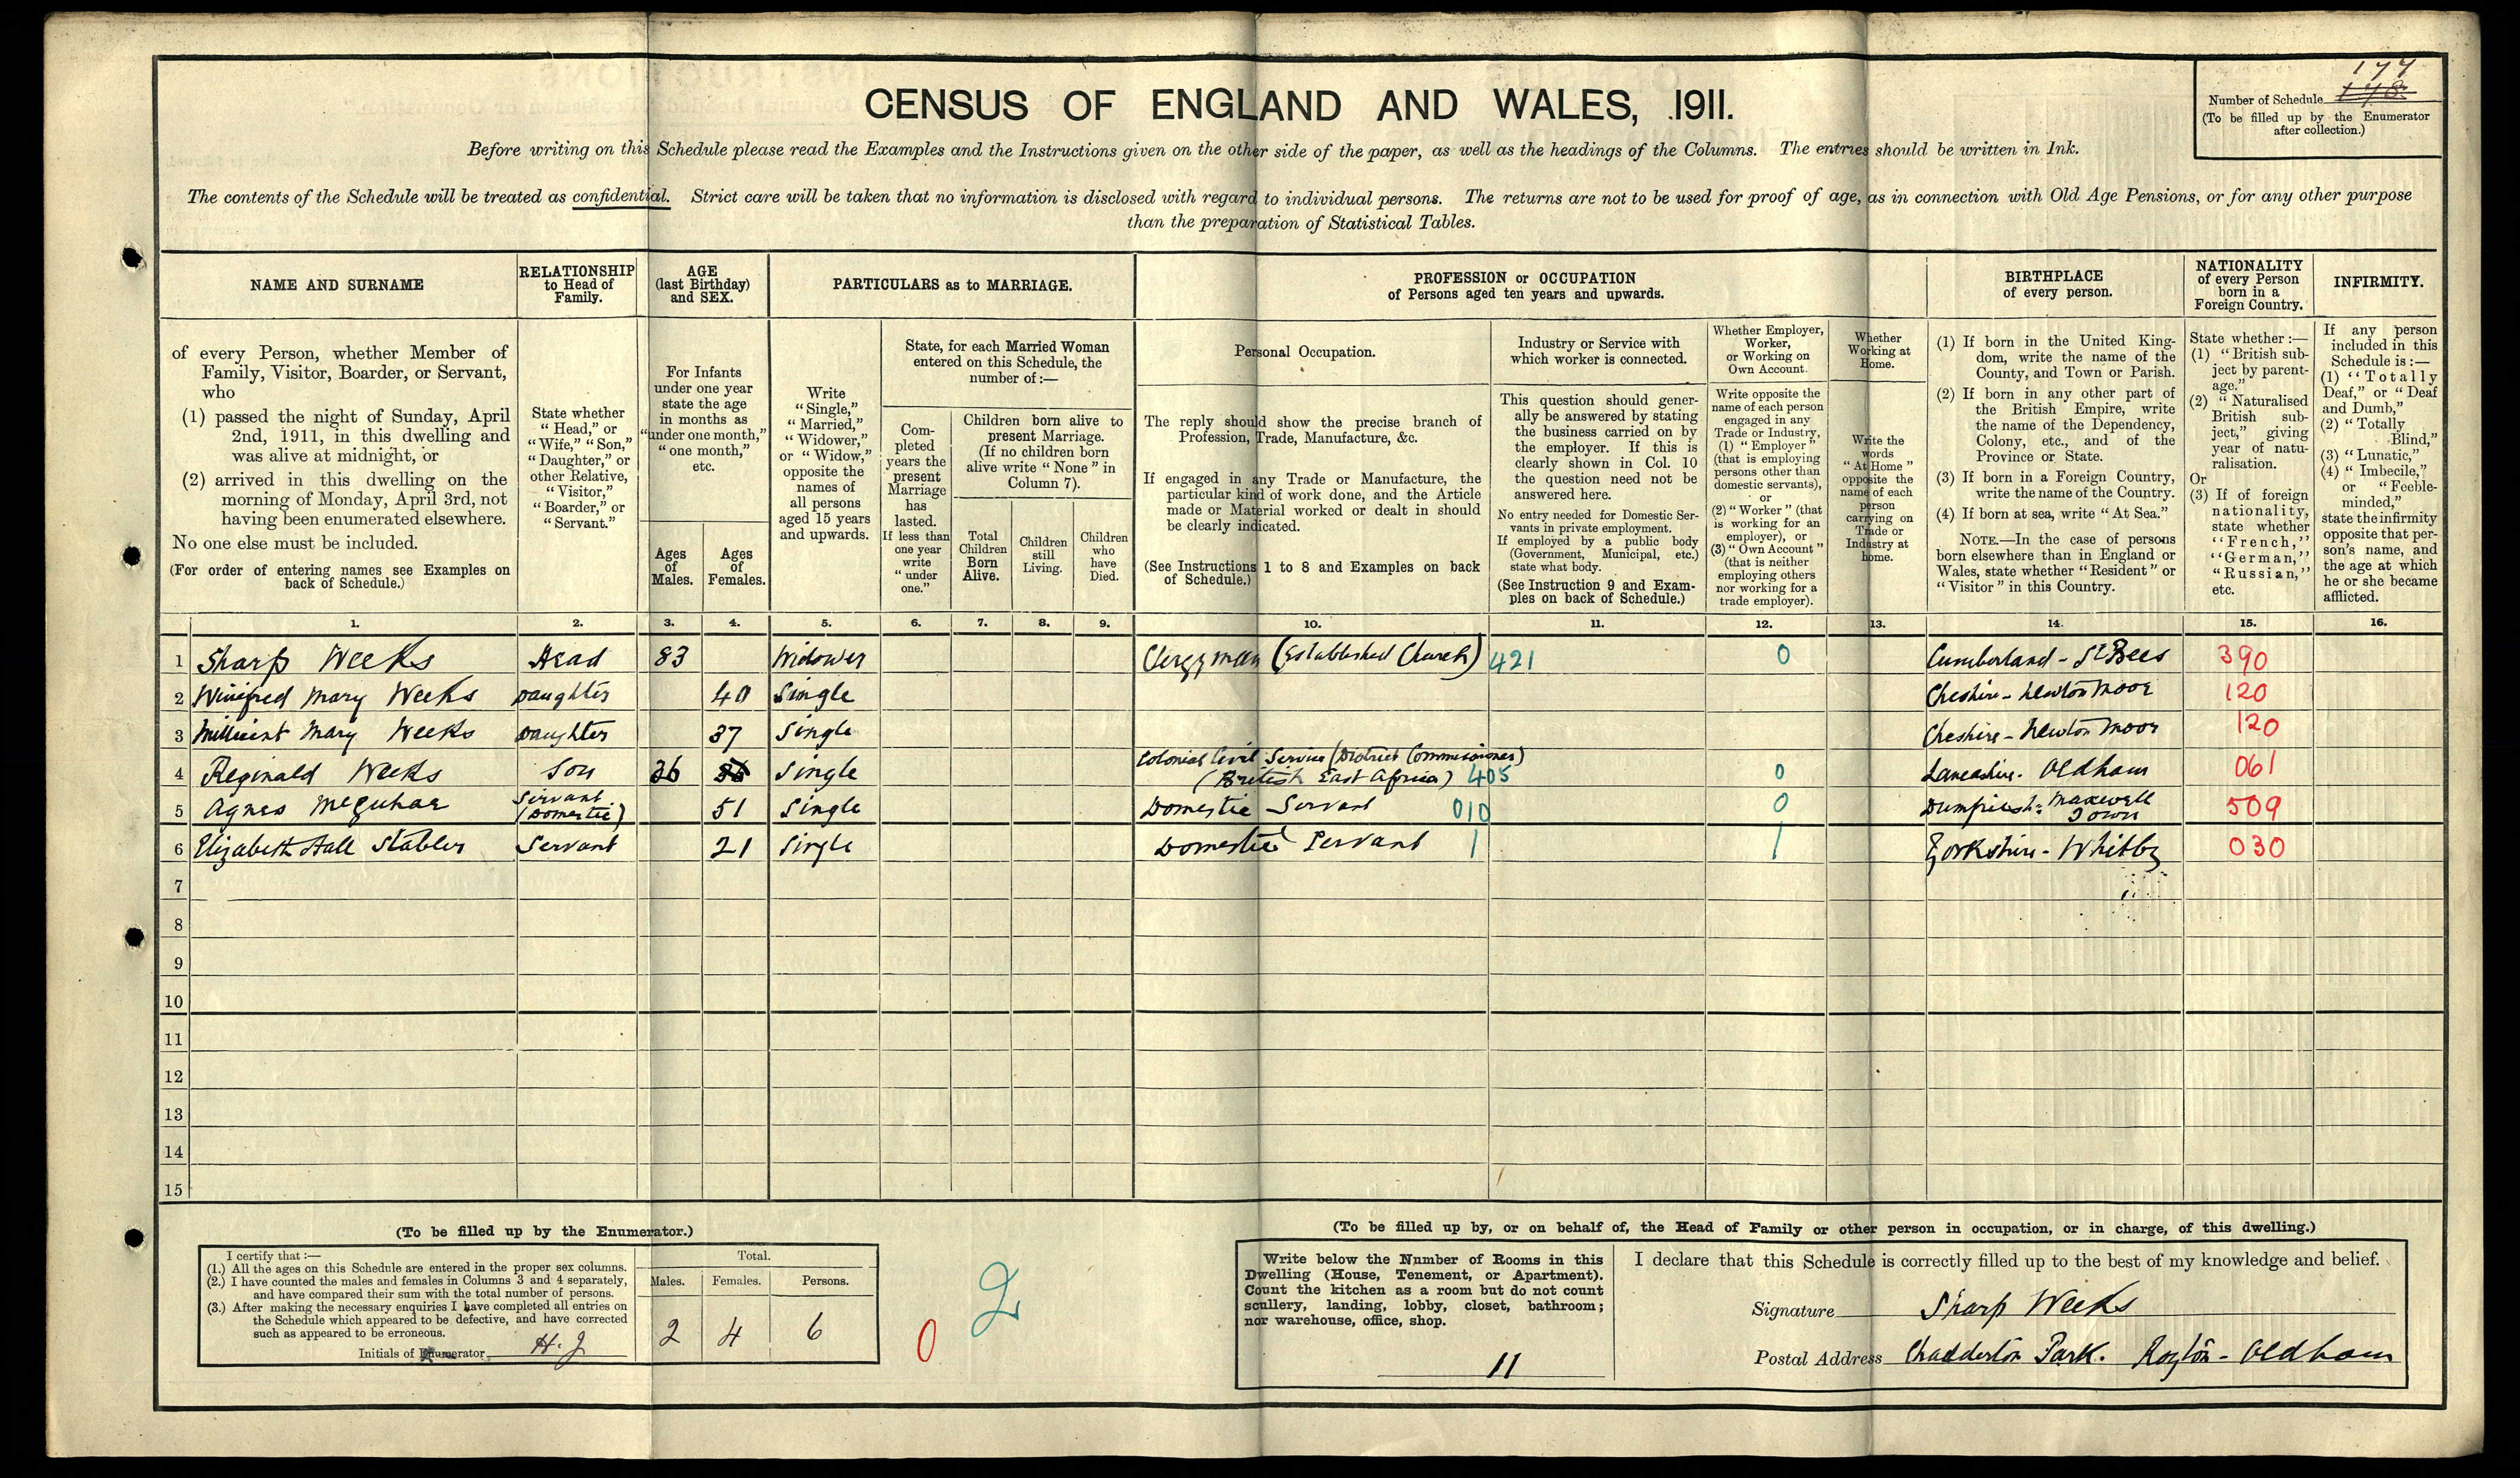 CENSUS OF ENGLAND AND WALES, 1911.
177
Number of Schedule 178
(To be filled up by the Enumerator
after collection.)
Before writing on this Schedule please read the Examples and the Instructions given on the other side of the paper, as well as the headings of the Columns. The entries should be written in Ink.
The contents of the Schedule will be treated as confidential. Strict care will be taken that no information is disclosed with regard to individual persons. The returns are not to be used for proof of age, as in connection with Old Age Pensions, or for any other purpose
than the preparation of Statistical Tables.
NAME AND SURNAME
of every Person, whether Member of
Family, Visitor, Boarder, or Servant,
who
(1) passed the night of Sunday, April
2nd, 1911, in this dwelling and
was alive at midnight, or
(2) arrived in this dwelling on the
morning of Monday, April 3rd, not
having been enumerated elsewhere.
No one else must be included.
(For order of entering names see Examples on
back of Schedule.)
RELATIONSHIP
to Head of
Family.
State whether
"Head," or
"Wife," "Son,"
"Daughter," or
other Relative,
"Visitor,"
"Boarder," or
"Servant."
AGE
(last Birthday)
and SEX.
For Infants
under one year
state the age
in months as
"under one month,"
"one month,"
etc.
Ages
of
Males.
Ages
of
Females.
PARTICULARS as to MARRIAGE.
Write
"Single,"
"Married,"
"Widower,"
or "Widow,"
opposite the
names of
all persons
aged 15 years
and upwards.
State, for each Married Woman
entered on this Schedule, the
number of:—
Com-
pleted
years the
present
Marriage
has
lasted.
If less than
one year
write
"under
one."
Children born alive to
present Marriage.
(If no children born
alive write "None" in
Column 7).
Total
Children
Born
Alive.
Children
still
Living.
Children
who
have
Died.
PROFESSION or OCCUPATION
of Persons aged ten years and upwards.
Personal Occupation.
The reply should show the precise branch of
Profession, Trade, Manufacture, &c.
If engaged in any Trade or Manufacture, the
particular kind of work done, and the Article
made or Material worked or dealt in should
be clearly indicated.
(See Instructions 1 to 8 and Examples on back
of Schedule.)
Industry or Service with
which worker is connected.
This question should gener-
ally be answered by stating
the business carried on by
the employer. If this is
clearly shown in Col. 10
the question need not be
answered here.
No entry needed for Domestic Ser-
vants in private employment.
If employed by a public body
(Government, Municipal, etc.)
state what body.
(See Instruction 9 and Exam-
ples on back of Schedule.)
Whether Employer,
Worker,
or Working on
Own Account.
Write opposite the
name of each person
engaged in any
Trade or Industry,
(1) "Employer"
(that is employing
persons other than
domestic servants),
or
(2) "Worker" (that
is working for an
employer), or
(3) "Own Account"
(that is neither
employing others
nor working for a
trade employer).
Whether
Working at
Home.
Write the
words
"At Home"
opposite the
name of each
person
carrying on
Trade or
Industry at
home.
BIRTHPLACE
of every person.
(1) If born in the United King-
dom, write the name of the
County, and Town or Parish.
(2) If born in any other part of
the British Empire, write
the name of the Dependency,
Colony, etc., and of the
Province or State.
(3) If born in a Foreign Country,
write the name of the Country.
(4) If born at sea, write "At Sea."
NOTE.—In the case of persons
born elsewhere than in England or
Wales, state whether "Resident" or
"Visitor" in this Country.
NATIONALITY
of every Person
born in a
Foreign Country.
State whether:—
(1) "British sub-
ject by parent-
age."
(2) "Naturalised
British sub-
ject," giving
year of natu-
ralisation.
Or
(3) If of foreign
nationality,
state whether
"French,"
"German,"
"Russian,"
etc.
INFIRMITY.
If any person
included in this
Schedule is:—
(1) "Totally
Deaf," or "Deaf
and Dumb,"
(2) "Totally
Blind,"
(3) "Lunatic,"
(4) "Imbecile,"
or "Feeble-
minded,"
state the infirmity
opposite that per-
son's name, and
the age at which
he or she became
afflicted.
1. 2. 3. 4. 5. 6. 7. 8. 9. 10. 11. 12. 13. 14. 15. 16.
1 Sharp Weeks Head 83 Widower Clergyman (Established Church) 421 0 Cumberland - St Bees 390
2 Winifred Mary Weeks Daughter 40 Single Cheshire - Newton Moor 120
3 Millicent Mary Weeks Daughter 37 Single Cheshire - Newton Moor 120
Colonial Civil Service (District Commissioner)
4 Reginald Weeks Son 36 Single (British East Africa) 405 0 Lancashire - Oldham 061
5 Agnes Servant (Domestic) 51 Single Domestic Servant 010 0 Dumfriesh: Maxwell Town 509
6 Elizabeth Hall Stabler Servant 21 Single Domestic Servant 1 1 Yorkshire - Whitby 030
7
8
9
10
11
12
13
14
15
(To be filled up by the Enumerator.)
I certify that:—
(1.) All the ages on this Schedule are entered in the proper sex columns.
(2.) I have counted the males and females in Columns 3 and 4 separately,
and have compared their sum with the total number of persons.
(3.) After making the necessary enquiries I have completed all entries on
the Schedule which appeared to be defective, and have corrected
such as appeared to be erroneous.
Initials of Enumerator H. J
Total.
Males. Females. Persons.
2 4 6
0
2
(To be filled up by, or on behalf of, the Head of Family or other person in occupation, or in charge, of this dwelling.)
Write below the Number of Rooms in this
Dwelling (House, Tenement, or Apartment).
Count the kitchen as a room but do not count
scullery, landing, lobby, closet, bathroom;
nor warehouse, office, shop.
11
I declare that this Schedule is correctly filled up to the best of my knowledge and belief.
Signature Sharp Weeks
Postal Address Chadderton Park. Royton - Oldham